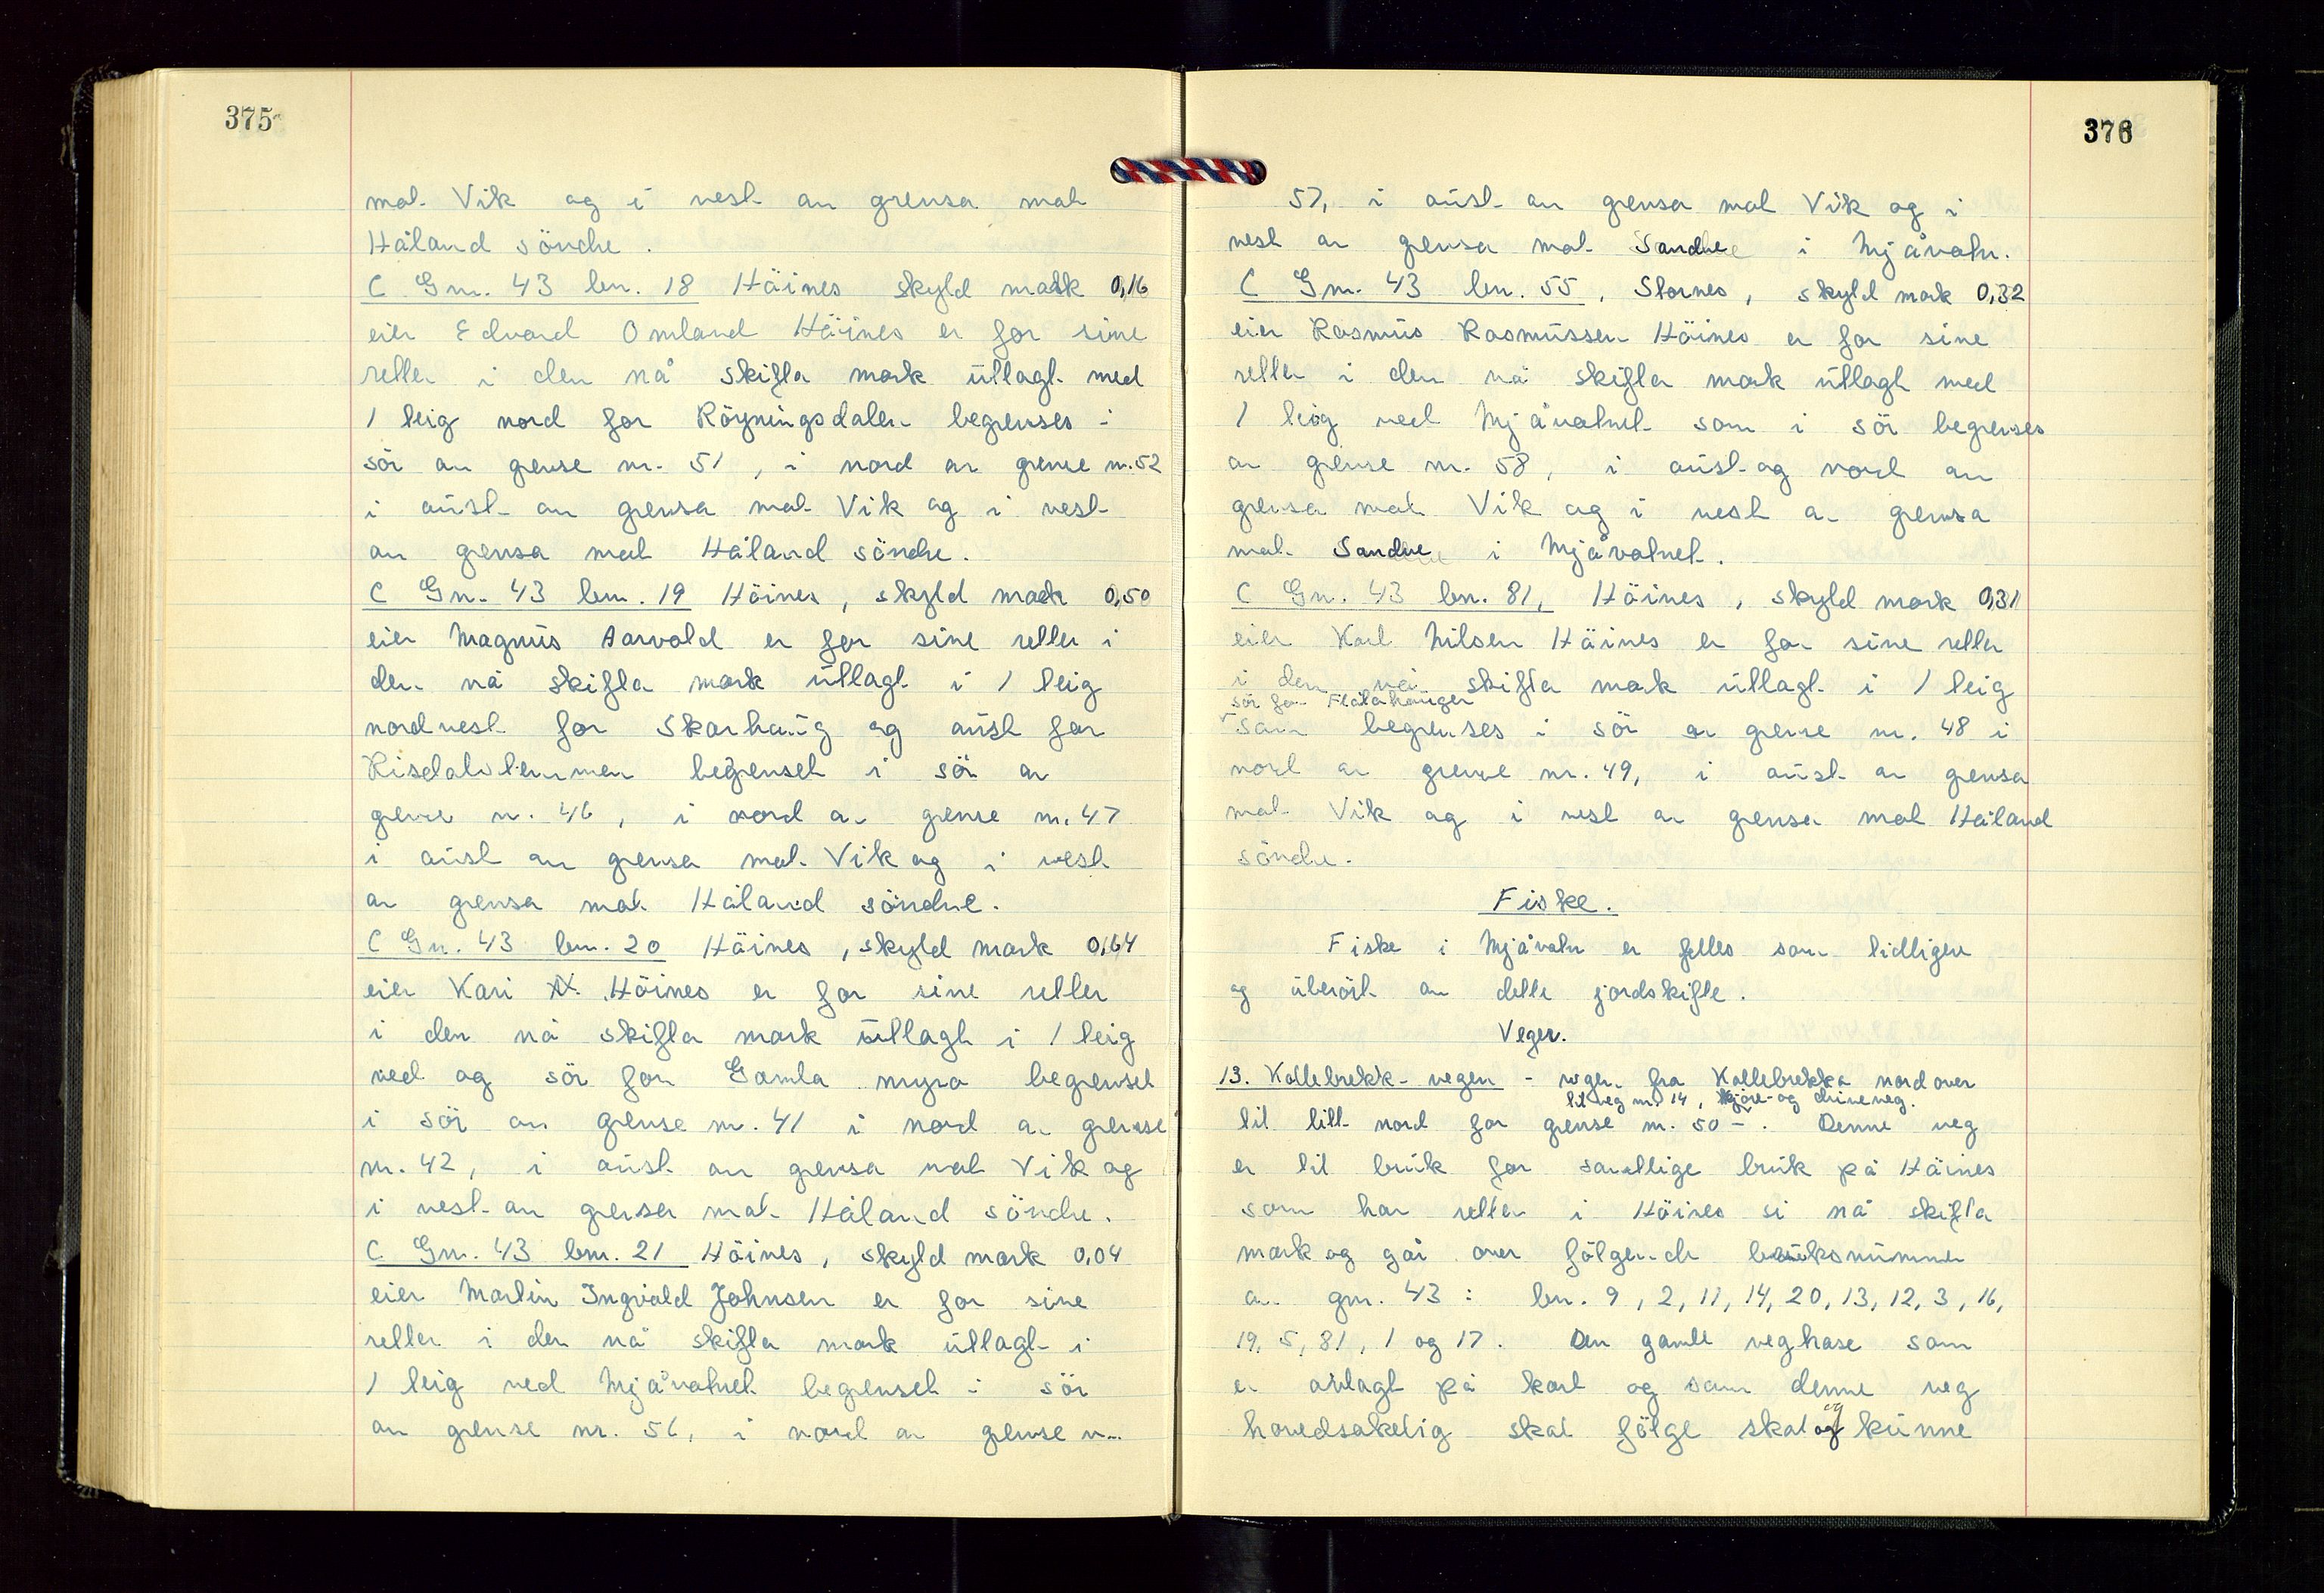 375
mot Vik og i vest av grensa mot
Håland söndre.
C Gnr. 43 bnr. 18 Höines skyld mark 0,16
eier Edvard Omland Höines er for sine
retter i den nå skifta mark utlagt med
1 teig nord for Röyningsdalen begrenses i
sör av grense nr. 51, i nord av grense nr. 52
i aust av grensa mot Vik og i vest
av grensa mot Håland söndre.
C Gnr. 43 bnr. 19 Höines, skyld mark 0,50
eier Magnus Aarvold er for sine retter i
den nå skifta mark utlagt i 1 teig
nordvest for Skorhaug og aust for
Risdalstemmen begrenset i sör av
grense nr. 46, i nord av grense nr. 47
i aust av grensa mot Vik og i vest
av grensa mot Håland söndre.
C Gnr. 43 bnr. 20 Höines, skyld mark 0,64
eier Kari N. Höines er for sine retter
i den nå skifta mark utlagt i 1 teig
ved og sör for Gamla myra begrenset
i sör av grense nr. 41 i nord av grense
nr. 42, i aust av grensa mot Vik og
i vest av grensa mot Håland söndre.
C Gnr. 43 bnr. 21 Höines, skyld mark 0,04
eier Martin Ingvald Johnsen er for sine
retter i den nå skifta mark utlagt i
1 teig ved Mjåvatnet begrenset i sör
av grense nr. 56, i nord av grense nr.
376
57, i aust av grensa mot Vik og i
vest av grensa mot Sandve i Mjåvatn.
C Gnr. 43 bnr. 55, Stornes, skyld mark 0,32
eier Rasmus Rasmussen Höines er for sine
retter i den nå skifta mark utlagt med
1 teig ved Mjåvatnet som i sör begrenses
av grense nr. 58, i aust og nord av
grensa mot Vik og i vest av grensa
mot Sandve i Mjåvatnet.
C Gnr. 43 bnr. 81, Höines, skyld mark 0,31
eier Karl Nilsen Höines er for sine retter
i den nå skifta mark utlagt i 1 teig
sör for Flåtahauger
som begrenses i sör av grense nr. 48 i
nord av grense nr. 49, i aust av grensa
mot Vik og i vest av grensa mot Håland
söndre.
Fiske.
Fiske i Mjåvatn er felles som tidligere
og uberört av dette jordskifte.
Veger.
13. Kollebrekk-vegen - vegen fra Kollebrekka nordover
til veg nr. 14, kjöre- og driveveg.
til litt nord for grense nr. 50 -. Denne veg
er til bruk for samtlige bruk på Höines
som har retter i Höines si nå skifta
mark og går over fölgende bruksnummer
av gnr. 43: bnr. 9, 2, 11, 14, 20, 13, 12, 3, 16,
19, 5, 81, 1 og 17. Den gamle veghase som
er avlagt på kart og som denne veg
hovedsakelig skal fölge skal og kunne